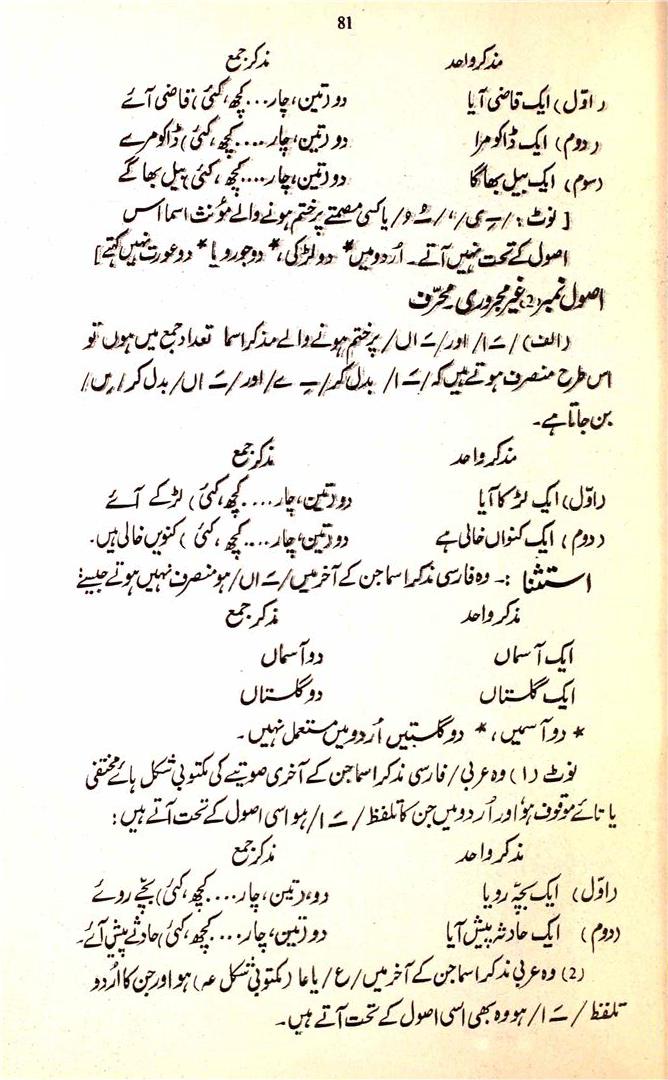 81
مذکر واحد مذکر جمع
(اوّل) ایک قاضی آیا دو (تین، چار... کچھ، کئی) قاضی آئے
(دوم) ایک ڈاکو مرا دو (تین، چار.... کچھ، کئی) ڈاکو مرے
(سوم) ایک بیل بھاگا دو (تین، چار.... کچھ، کئی) بیل بھاگے
[نوٹ: / ی/، / و/ یا کسی مصمتے پر ختم ہونے والے مؤنث اسما اس
اصول کے تحت نہیں آتے۔ اُردو میں * دو لڑکی، * دو جورو یا * دو عورت نہیں کہتے]
اصول نمبر (2) غیر مجروری۔ محرّف
(الف) /ـَ ا/ اور /ـَ اں/ پر ختم ہونے والے مذکر اسما تعداد جمع میں ہوں تو
اس طرح منصرف ہوتے ہیں کہ /ـَ ا/ بدل کر /ـِ ے/ اور /ـَ اں/ بدل کر /یں/
بن جاتا ہے۔
مذکر واحد مذکر جمع
(اوّل) ایک لڑکا آیا دو (تین، چار.... کچھ، کئی) لڑکے آئے
(دوم) ایک کنواں خالی ہے دو (تین، چار.... کچھ، کئی) کنویں خالی ہیں۔
استثنا :۔ وہ فارسی مذکر اسما جن کے آخر میں /ـَ اں/ ہو منصرف نہیں ہوتے جیسے:
مذکر واحد مذکر جمع
ایک آسماں دو آسماں
ایک گلستاں دو گلستاں
* دو آسمیں، * دو گلستیں اُردو میں مستعمل نہیں۔
نوٹ (1) وہ عربی/فارسی مذکر اسما جن کے آخری صوتیے کی مکتوبی شکل ہائے مختفی
یا تائے موقوف ہو اور اُردو میں جن کا تلفظ /ـَ ا/ ہو اسی اصول کے تحت آتے ہیں:
مذکر واحد مذکر جمع
(اوّل) ایک بچّہ رویا دو، (تین، چار.... کچھ، کئی) بچّے روئے
(دوم) ایک حادثہ پیش آیا دو (تین، چار... کچھ، کئی) حادثے پیش آئے۔
(2) وہ عربی مذکر اسما جن کے آخر میں /ع/ یا عا (مکتوبی شکل عہ) ہو اور جن کا اُردو
تلفظ /ـَ ا/ ہو وہ بھی اسی اصول کے تحت آتے ہیں۔